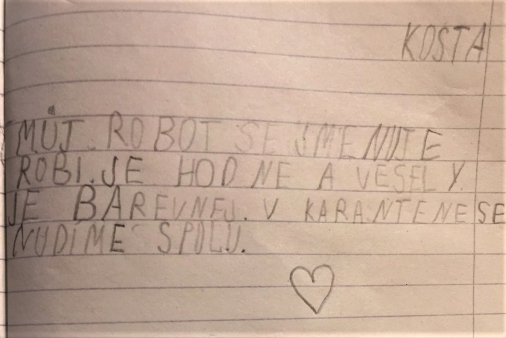 KOSTA
MŮJ ROBOT SE JMENUJE
ROBI. JE HODNE A VESELY.
JE BAREVNEJ. V KARANTENE SE
NUDÍME SPOLU.